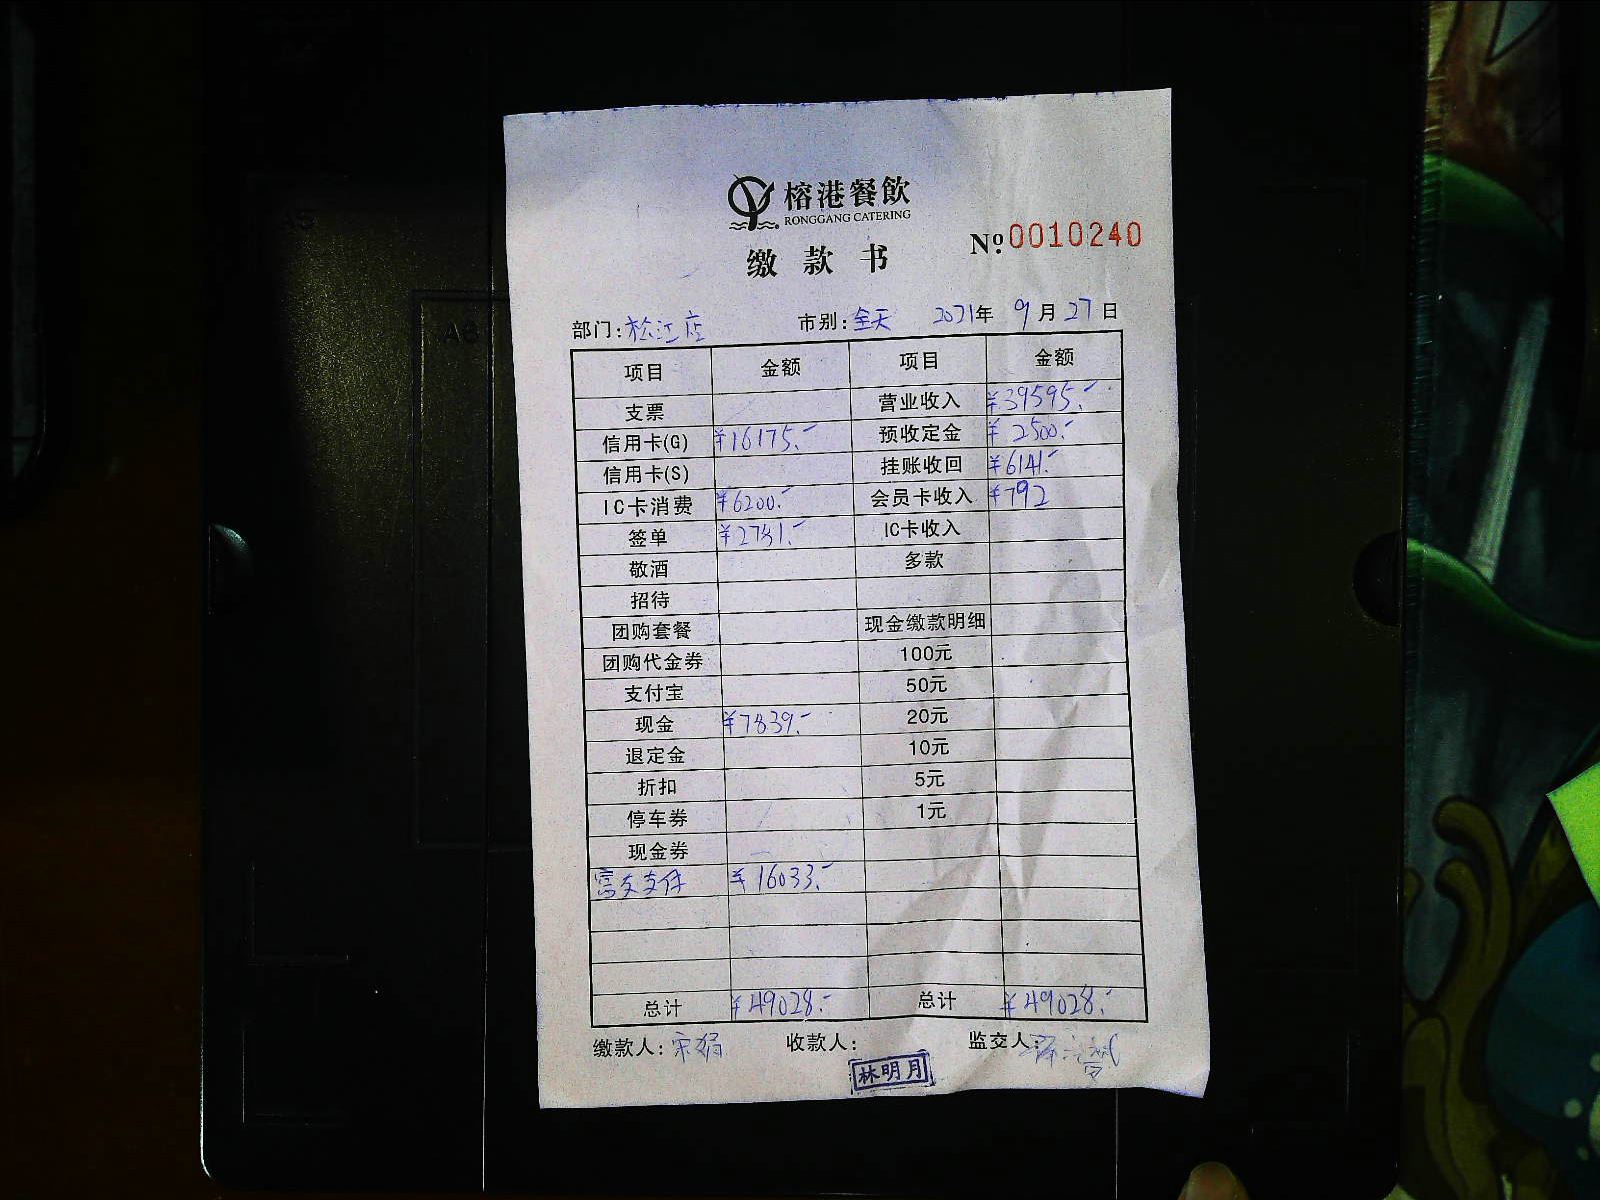 榕港餐飲
RONGGANG CATERING
缴款书 №0010240
部门:松江店 市别:全天 2021年9月27日
项目 金额 项目 金额
支票 营业收入 ¥39595.-
信用卡(G) ¥16175.- 预收定金 ¥2500.-
信用卡(S) 挂账收回 ¥6141.-
IC卡消费 ¥6200.- 会员卡收入 ¥792
签单 ¥2781.- IC卡收入
敬酒 多款
招待
团购套餐 现金缴款明细
团购代金券 100元
支付宝 50元
现金 ¥7839.- 20元
退定金 10元
折扣 5元
停车券 1元
现金券
富友支付 ¥16033.-
总计 ¥49028.- 总计 ¥49028.-
缴款人:宋娟 收款人: 监交人:
林明月
A5
A6